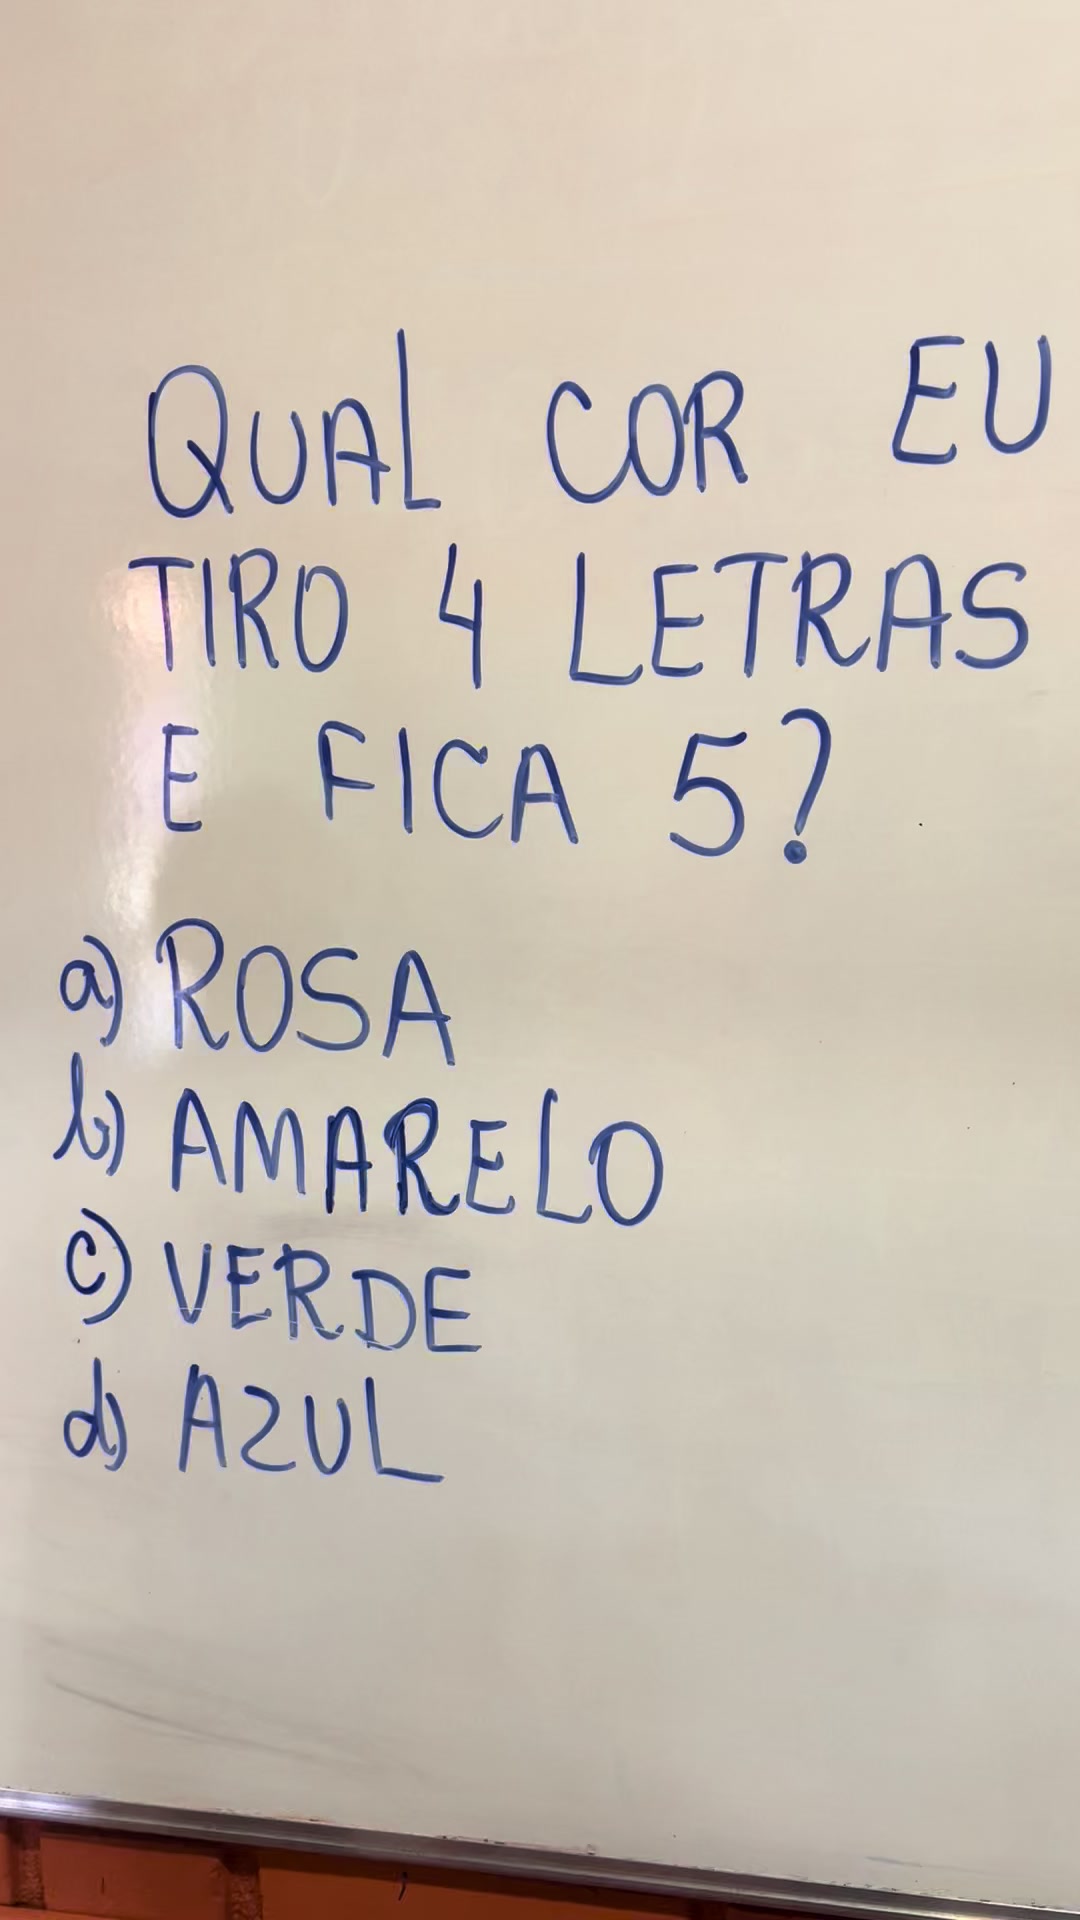 QUAL COR EU
TIRO 4 LETRAS
E FICA 5?
a) ROSA
b) AMARELO
c) VERDE
d) AZUL